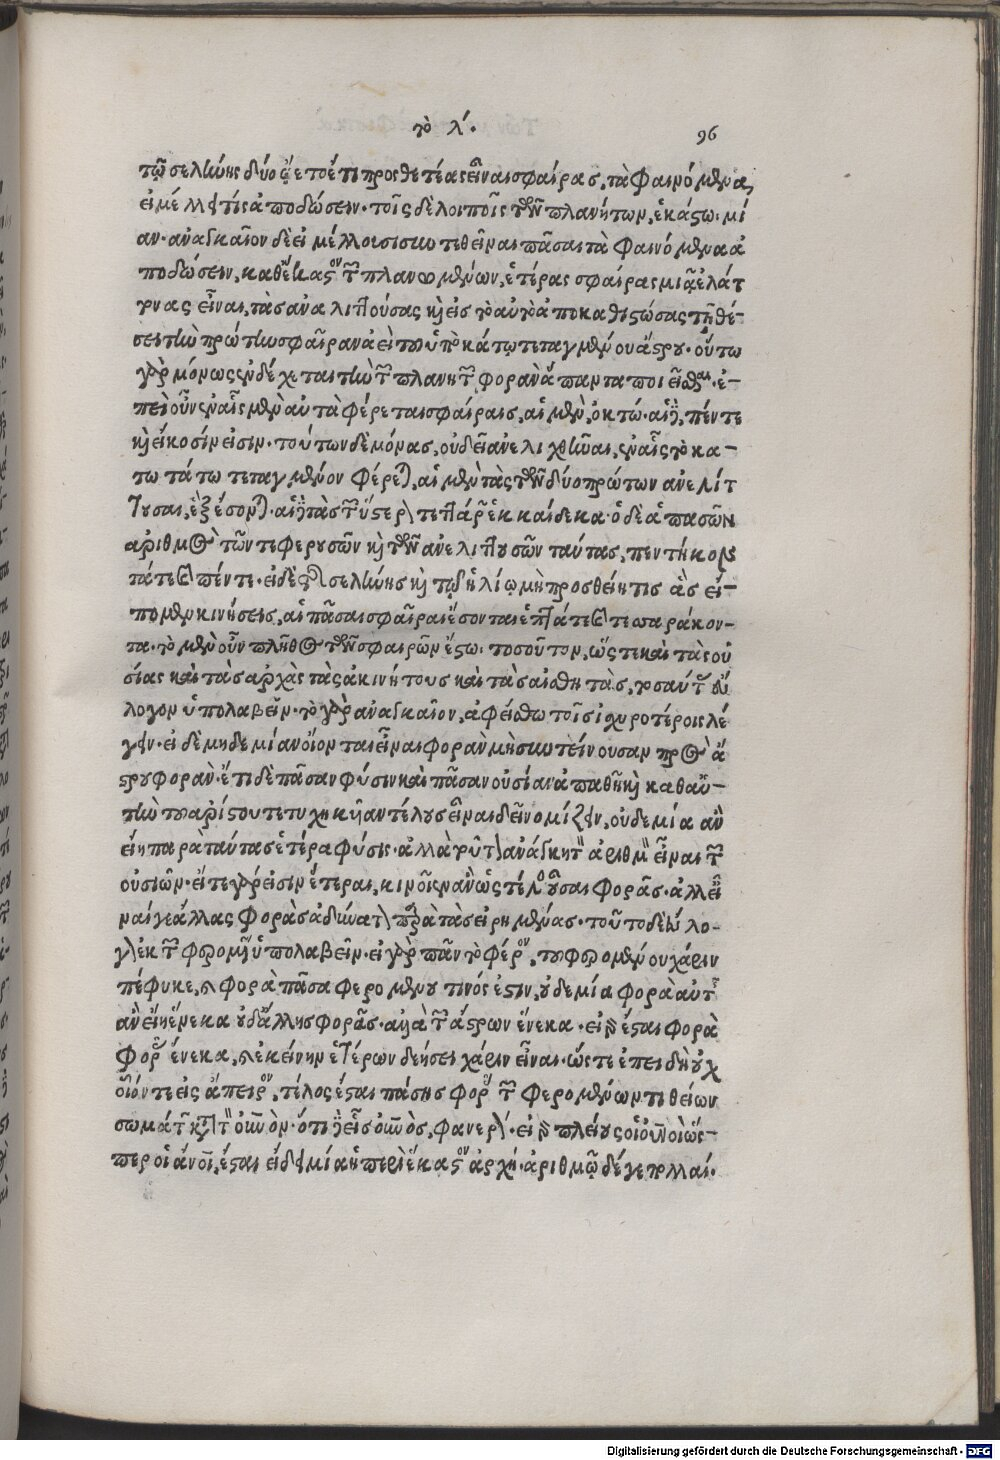 τὸ λ΄. 96
τῆς σελήνης δύο ᾤετο ἔτι προσθετέας εἶναι σφαίρας, τὰ φαινόμενα,
εἰ μέλλει τίς ἀποδώσειν. τοῖς δὲ λοιποῖς τῶν πλανήτων, ἑκάστω. μί
αν. ἀναγκαῖον δὲ εἰ μέλλοισι συντεθεῖσαι πᾶσαι τὰ φαινόμενα ἀ
ποδώσειν, καθ' ἕκαστον τῶν πλανωμένων, ἑτέρας σφαίρας μιᾷ ἐλάτ
τονας εἶναι, τὰς ἀνελιττούσας καὶ εἰς τὸ αὐτὸ ἀποκαθιστώσας τῇ θέ-
σει τὴν πρώτην σφαῖραν ἀεὶ τοῦ ὑποκάτω τεταγμένου ἄστρου. οὕτω
γὰρ μόνως ἐνδέχεται τὴν τῶν πλανητῶν φορὰν ἅπαντα ποιεῖσθαι. ἐ-
πεὶ οὖν ἐν αἷς μὲν αὐτὰ φέρεται σφαίραις, αἱ μὲν, ὀκτώ. αἱ δὲ, πέντε
καὶ εἴκοσίν εἰσιν. τούτων δὲ μόνας, οὐ δεῖ ἀνελιχθῆναι, ἐν αἷς τὸ κα-
τωτάτω τεταγμένον φέρεται, αἱ μὲν τὰς τῶν δύο πρώτων ἀνελίτ
τουσαι, ἓξ ἔσονται. αἱ δὲ τὰς τῶν ὕστερον τεττάρων ἑκκαίδεκα. ὁ δὲ ἁπασῶν
ἀριθμὸς τῶν τε φερουσῶν καὶ τῶν ἀνελιττουσῶν ταύτας, πεντήκον
τά τε καὶ πέντε. εἰ δὲ τῇ σελήνης καὶ τῷ ἡλίῳ μὴ προσθείη τις ἃς εἴ-
πομεν κινήσεις, αἱ πᾶσαι σφαῖραι ἔσονται ἑπτά τε καὶ τεσσαράκον-
τα. τὸ μὲν οὖν πλῆθος τῶν σφαιρῶν ἔστω. τοσοῦτον, ὥστε καὶ τὰς οὐ
σίας καὶ τὰς ἀρχὰς τὰς ἀκινήτους καὶ τὰς αἰσθητὰς, τοσαύτας εὔ
λογον ὑπολαβεῖν. τὸ γὰρ ἀναγκαῖον, ἀφείσθω τοῖς ἰσχυροτέροις λέ
γειν. εἰ δὲ μηδεμίαν οἷόν τ' εἶναι φορὰν μὴ συντείνουσαν πρὸς ἄ
στρου φορὰν. ἔτι δὲ πᾶσαν φύσιν καὶ πᾶσαν οὐσίαν ἀπαθῆ καὶ καθ' αὑ-
τὴν τοῦ ἀρίστου τετυχηκυῖαν τέλους εἶναι δεῖ νομίζειν, οὐδεμία ἂν
εἴη παρὰ ταύτας ἑτέρα φύσις. ἀλλὰ τοῦτον ἀνάγκη τὸν ἀριθμὸν εἶναι τῶν
οὐσιῶν. εἴτε γάρ εἰσιν ἕτεραι, κινοῖεν ἂν ὡς τέλος οὖσαι φορᾶς. ἀλλὰ εἶ
ναί γε ἄλλας φορὰς ἀδύνατον παρὰ τὰς εἰρημένας. τοῦτο δὲ εὔλο-
γον ἐκ τῶν φερομένων ὑπολαβεῖν. εἰ γὰρ πᾶν τὸ φέρον, τοῦ φερομένου χάριν
πέφυκε, καὶ φορὰ πᾶσα φερομένου τινός ἐστιν, οὐδεμία φορὰ αὑτῆς
ἂν εἴη ἕνεκα οὐδ' ἄλλης φορᾶς. ἀλλὰ τῶν ἄστρων ἕνεκα. εἰ γὰρ ἔσται φορὰ
φορᾶς ἕνεκα, καὶ ἐκείνην ἑτέρων δεήσει χάριν εἶναι. ὥστε ἐπειδὴ οὐχ
οἷόν τε εἰς ἄπειρον, τέλος ἔσται πάσης φορᾶς τῶν φερομένων τι θείων
σωμάτων κατὰ τὸν οὐρανὸν. ὅτι δὲ εἷς οὐρανὸς, φανερόν. εἰ γὰρ πλείους οἱ οὐρανοὶ ὥσ-
περ οἱ ἄνθρωποι, ἔσται εἴδει μία ἡ περὶ ἕκαστον ἀρχή. ἀριθμῷ δέ γε πολλαί.
Digitalisierung gefördert durch die Deutsche Forschungsgemeinschaft - DFG